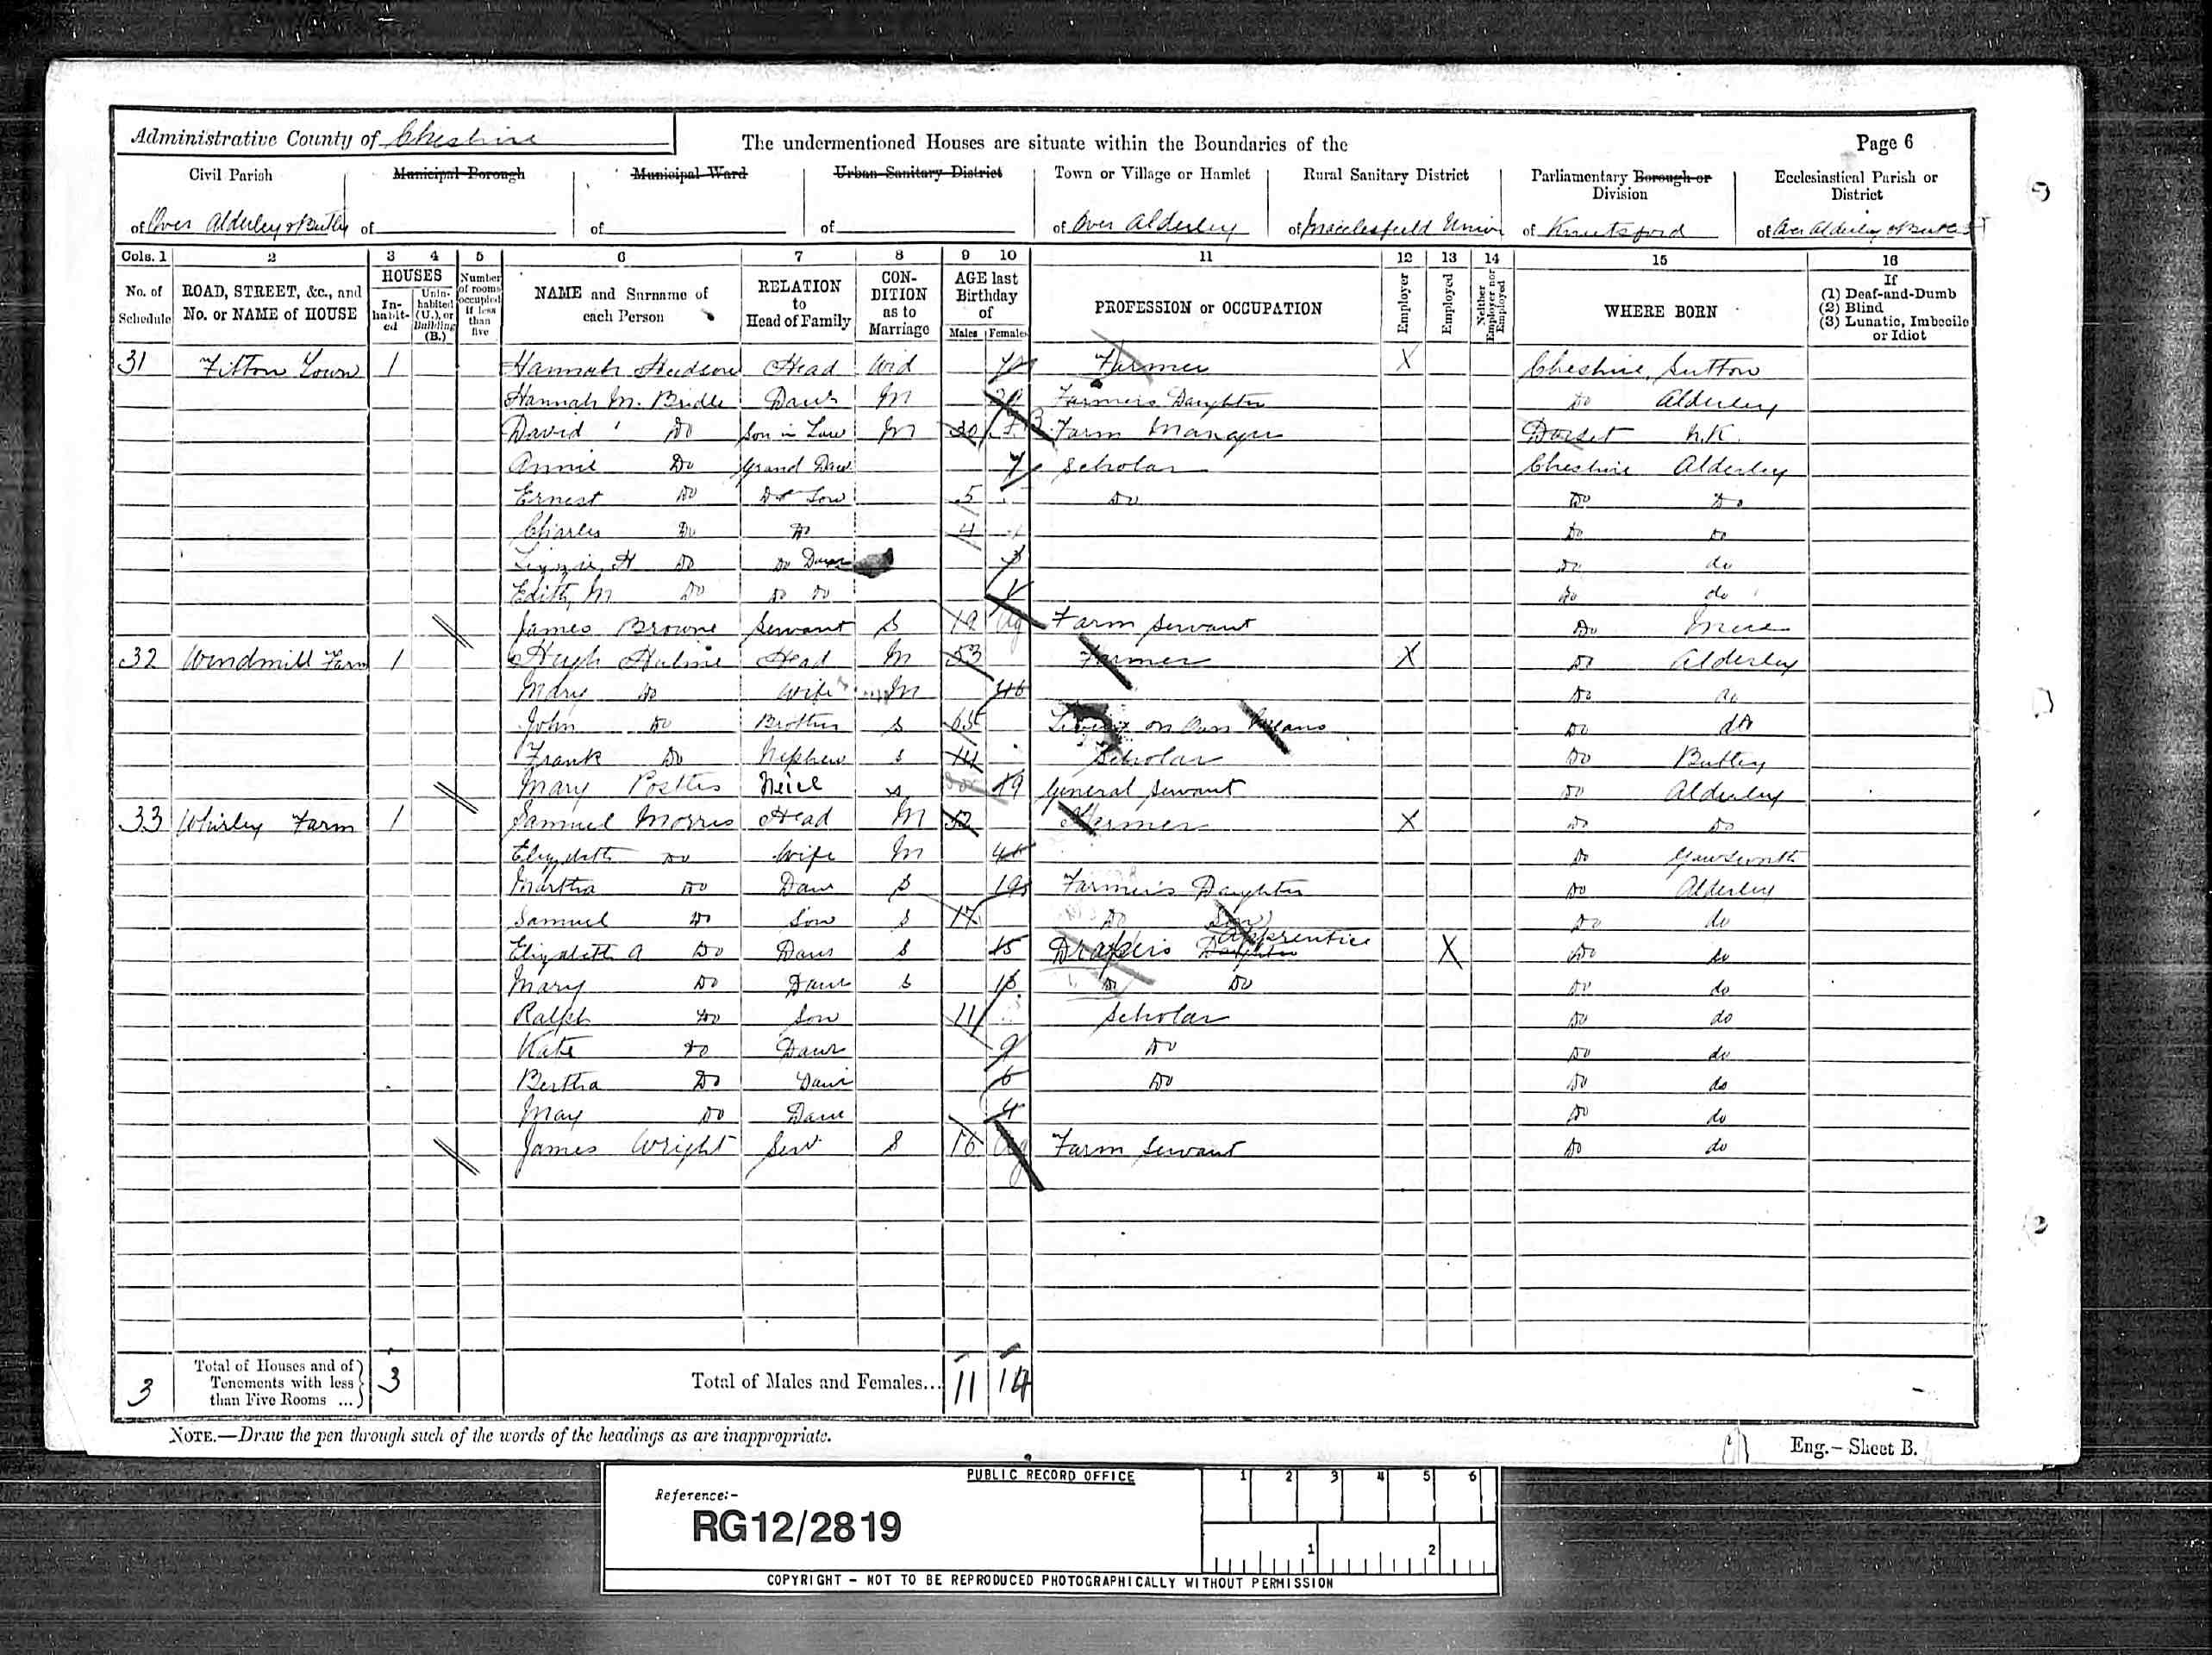 Administrative County of Cheshire
The undermentioned Houses are situate within the Boundaries of the
Page 6
Civil Parish Municipal Borough Municipal Ward Urban Sanitary District Town or Village or Hamlet Rural Sanitary District Parliamentary Borough or Division Ecclesiastical Parish or District
of Over Alderley & Butley of of of of Over Alderley of Macclesfield Union of Knutsford of Over Alderley & Butley
Cols. 1 2 3 4 5 6 7 8 9 10 11 12 13 14 15 16
No. of Schedule
ROAD, STREET, &c., and No. or NAME of HOUSE
HOUSES
In-habit-ed
Unin-habited (U.), or Building (B.)
Number of rooms occupied if less than five
NAME and Surname of each Person
RELATION to Head of Family
CON-DITION as to Marriage
AGE last Birthday of
Males Females
PROFESSION or OCCUPATION
Employer
Employed
Neither Employer nor Employed
WHERE BORN
If
(1) Deaf-and-Dumb
(2) Blind
(3) Lunatic, Imbecile or Idiot
31 Fitton Town 1 Hannah Hudson Head Wid Farmer X Cheshire, Sutton
Hannah M. Bridle Daur M 29 Farmers Daughter Do Alderley
David Do Son in Law M 30 Farm Manager Dorset N.K.
Annie Do Grand Daur 7 Scholar Cheshire Alderley
Ernest Do Do Son 5 Do Do Do
Charles Do Do 4 Do Do
Lizzie H Do Do Daur Do do
Edith M Do Do Do Do do
James Browne Servant S 19 Ag Farm Servant Do
32 Windmill Farm 1 Hugh Hulme Head M 53 Farmer X Do Alderley
Mary Do Wife M 46 Do do
John Do Brother S 65 Living on Own Means Do do
Frank Do Nephew S 14 Scholar Do Butley
Mary Postles Neice S 19 General Servant Do Alderley
33 Whirley Farm 1 Samuel Morris Head M 52 Farmer X Do Do
Elizabeth Do Wife M Do Gawsworth
Martha Do Daur S 19 Farmer's Daughter Do Alderley
Samuel Do Son S 17 Do Son Do do
Apprentice
Elizabeth A Do Daur S 15 Drapers Daughter X Do do
Mary Do Daur S Do Do Do do
Ralph Do Son 11 Scholar Do do
Kate Do Daur 9 Do Do do
Bertha Do Daur 6 Do Do do
May Do Daur 4 Do do
James Wright Serv S 16 Ag Farm Servant Do do
3 Total of Houses and of Tenements with less than Five Rooms ... 3 Total of Males and Females... 11 14
NOTE.—Draw the pen through such of the words of the headings as are inappropriate.
Eng.—Sheet B.
PUBLIC RECORD OFFICE
1 2 3 4 5 6
Reference:-
RG12/2819
1 2
COPYRIGHT - NOT TO BE REPRODUCED PHOTOGRAPHICALLY WITHOUT PERMISSION